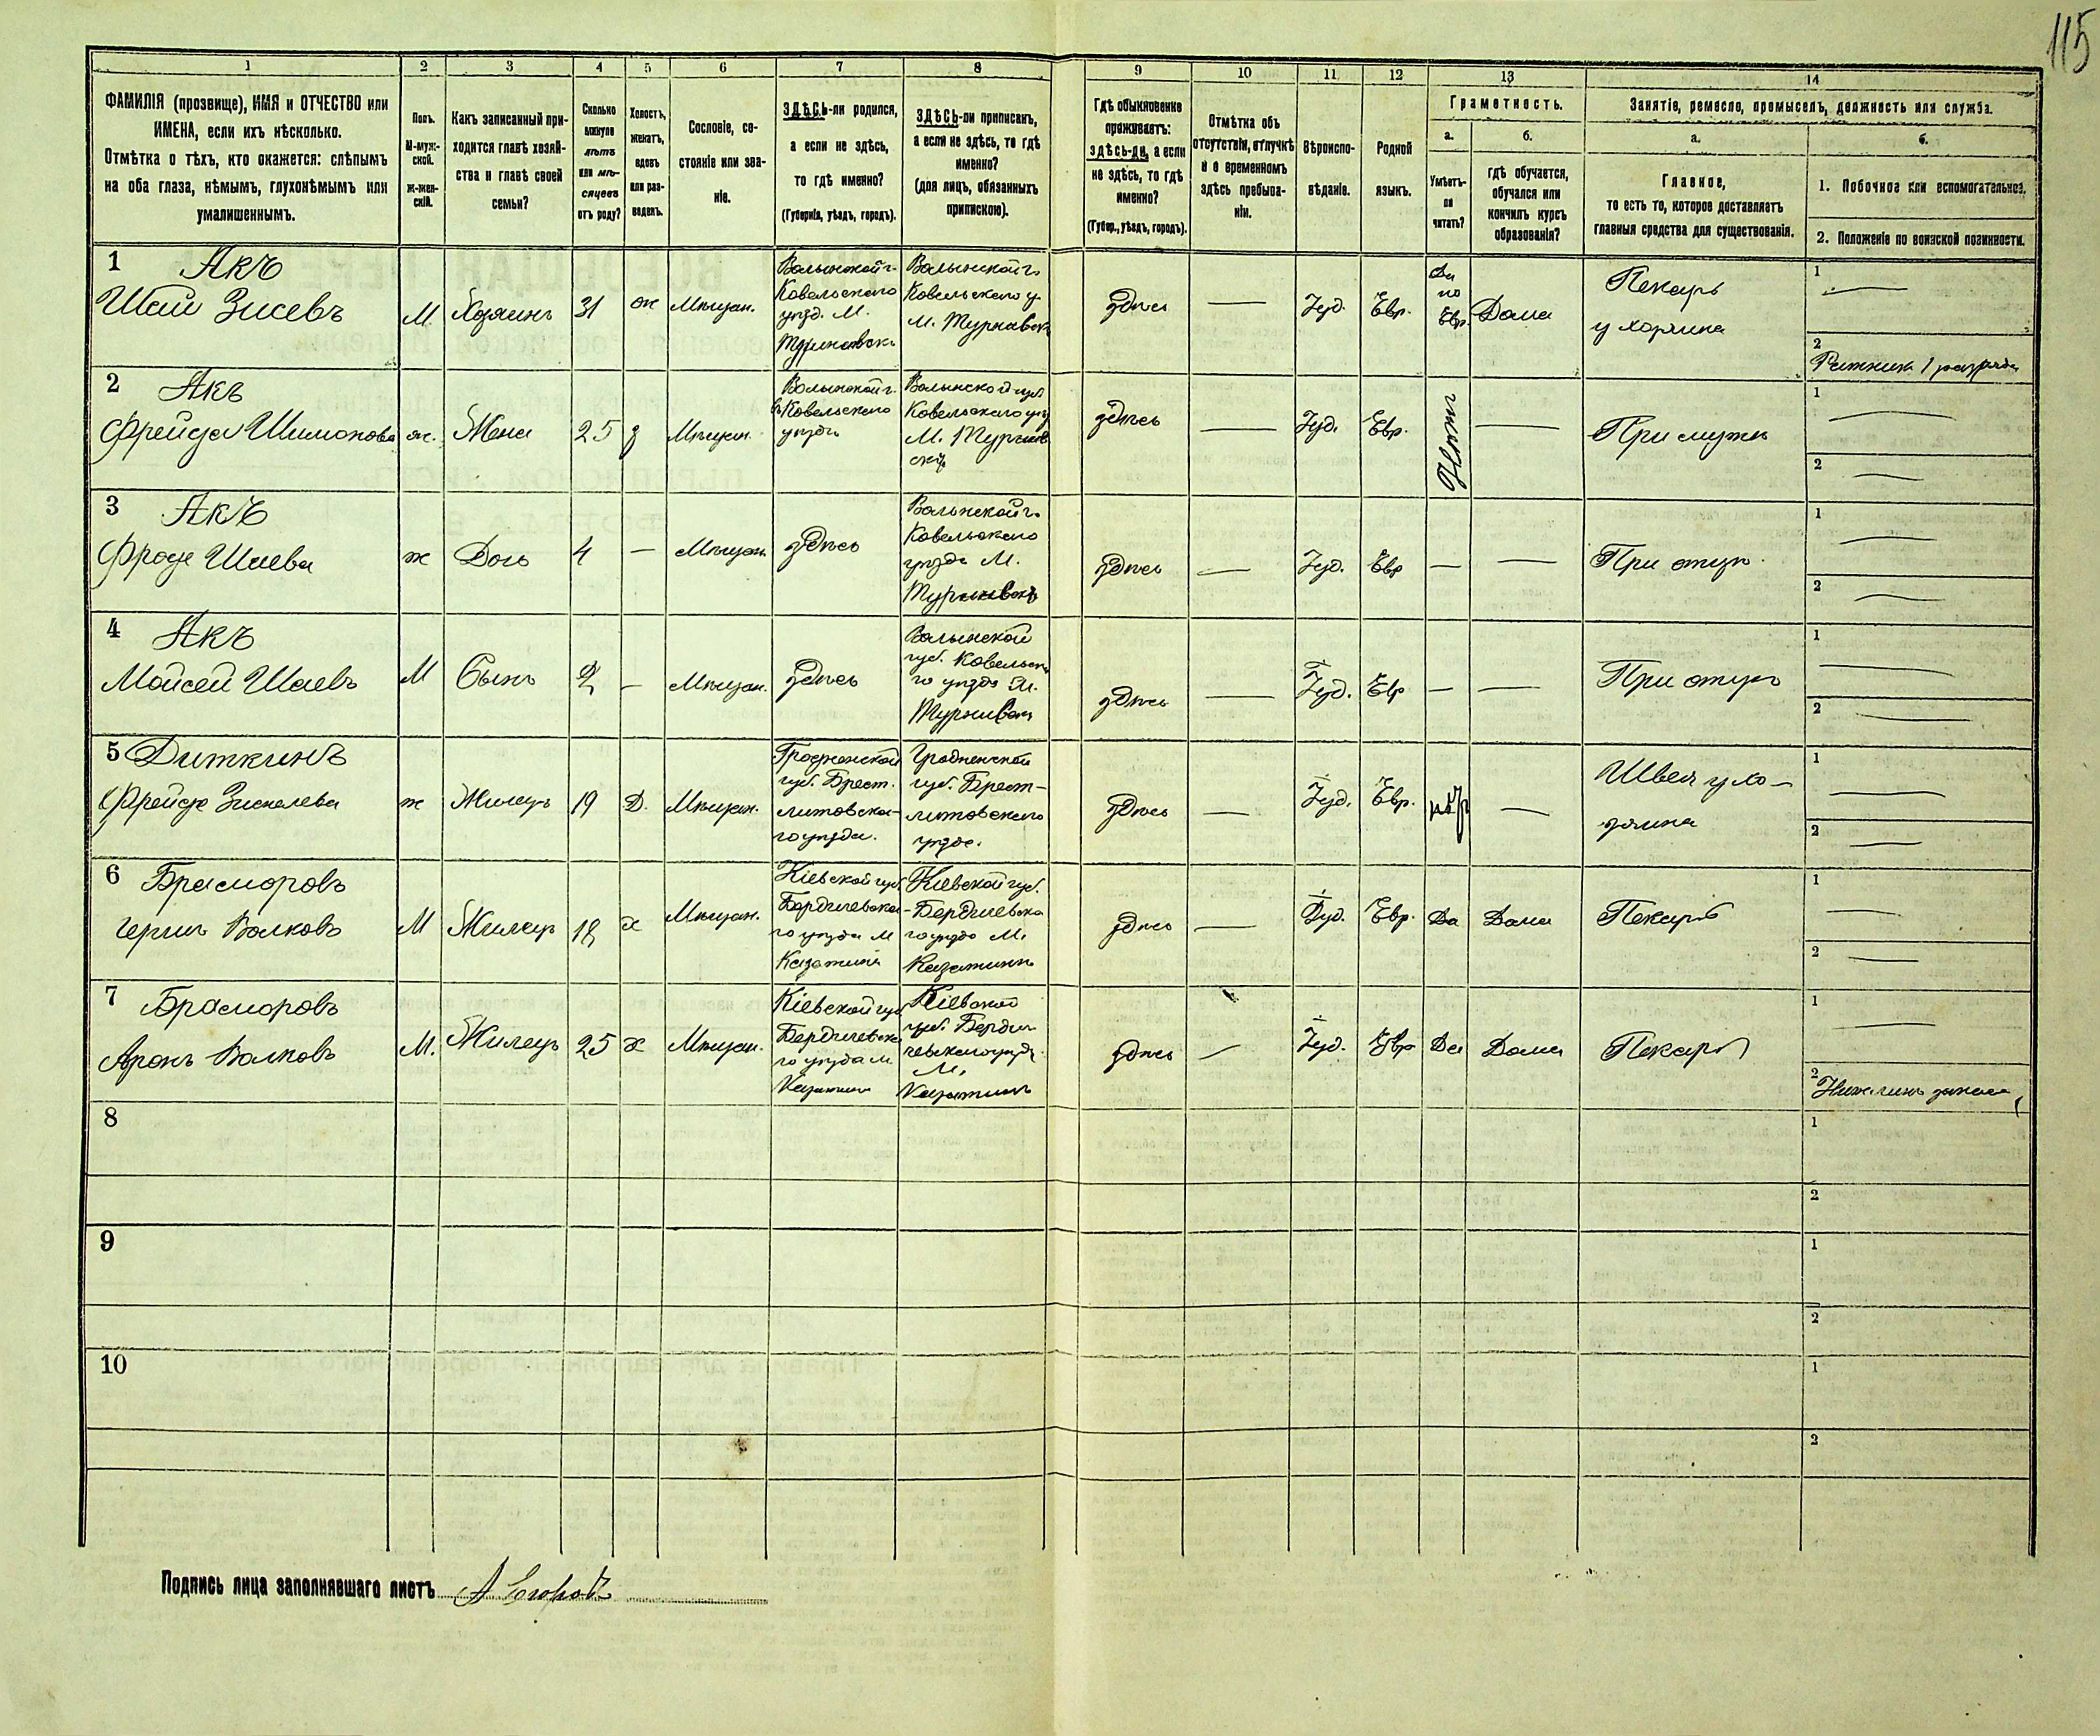 115
1 2 3 4 5 6 7 8 9 10 11 12 13 14
ФАМИЛІЯ (прозвище), ИМЯ и ОТЧЕСТВО или
ИМЕНА, если ихъ нѣсколько.
Отмѣтка о тѣхъ, кто окажется: слѣпымъ
на оба глаза, нѣмымъ, глухонѣмымъ или
умалишеннымъ.
Полъ.
М-муж-
ской.
Ж-жен-
скій.
Какъ записанный при-
ходится главѣ хозяй-
ства и главѣ своей
семьи?
Сколько
минуло
лѣтъ
или мѣ-
сяцевъ
отъ роду?
Холостъ,
женатъ,
вдовъ
или раз-
веденъ.
Сословіе, со-
стояніе или зва-
ніе.
ЗДѢСЬ-ли родился,
а если не здѣсь,
то гдѣ именно?
(Губернія, уѣздъ, городъ).
ЗДѢСЬ-ли приписанъ,
а если не здѣсь, то гдѣ
именно?
(для лицъ, обязанныхъ
припискою).
Гдѣ обыкновенно
проживаетъ:
здѣсь-ли, а если
не здѣсь, то гдѣ
именно?
(Губер., уѣздъ, городъ).
Отмѣтка объ
отсутствіи, отлучкѣ
и о временномъ
здѣсь пребыва-
ніи.
Вѣроиспо-
вѣданіе.
Родной
языкъ.
Грамотность.
а.
Умѣетъ-
ли
читать?
б.
гдѣ обучается,
обучался или
кончилъ курсъ
образованія?
Занятіе, ремесло, промыселъ, должность или служба.
а.
Главное,
то есть то, которое доставляетъ
главныя средства для существованія.
б.
1. Побочное или вспомогательное.
2. Положеніе по воинской повинности.
1 Акъ
Шай Зисевъ
М
Хозяинъ
31
ж
Мѣщан.
Волынской г.
Ковельского
уѣзд. М.
Волынской г.
Ковельского у.
М.
здѣсь
—
Іуд.
Евр.
Да
по
Евр.
Дома
Пекарь
у хозяина
1 —
2
Ратникъ 1 разряда
2 Акъ
Фрейда Шимонова
ж.
Жена
25
з
Мѣщан.
Волынской г.
Ковельского
уѣзда
Волынской губ
Ковельского уѣз
М.
здѣсь
—
Іуд.
Евр.
Нѣтъ
—
При мужѣ
1 —
2 —
3 Акъ
Фрода Шаева
ж
Дочь
4
—
Мѣщан.
здѣсь
Волынской г.
Ковельского
уѣзда М.
здѣсь
—
Іуд.
Евр
—
—
При отцѣ.
1 —
2 —
4 Акъ
Мойсей Шаевъ
М
Сынъ
2
—
Мѣщан.
здѣсь
Волынской
губ. Ковельска
го уѣзда М.
здѣсь
—
Іуд.
Евр
—
—
При отцѣ
1 —
2 —
5 Диткинъ
Фрейда
ж
Жилецъ
19
Д.
Мѣщан.
Гродненской
губ. Брест.
литовска-
го уѣзда.
Гродненской
губ. Брест-
литовского
уѣзда.
здѣсь
—
Іуд.
Евр.
—
Швея у хо-
зяина
1 —
2 —
6
Волковъ
М
Жилецъ
18
х
Мѣщан.
Кіевской губ.
Бердичевска-
го уѣзда М
Казатина
Кіевской губ.
Бердичевска
го уѣзда М.
Казатинъ
здѣсь
—
Іуд.
Евр.
Да
Дома
Пекарь
1 —
2 —
7
Аронъ Волковъ
М.
Жилецъ
25
х
Мѣщан.
Кіевской губ
Бердичевска
го уѣзда М
Казатина
Кіевской
губ. Берди
чевского уѣзда
М.
Казатинъ
здѣсь
—
Іуд.
Евр
Да
Дома
Пекарь
1 —
2
8
1
2
9
1
2
10
1
2
Подпись лица заполнявшаго листъ